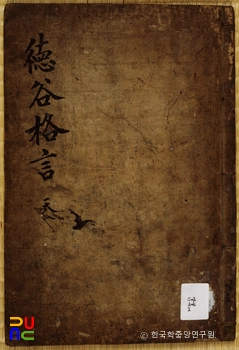 德谷格言
© 한국학중앙연구원